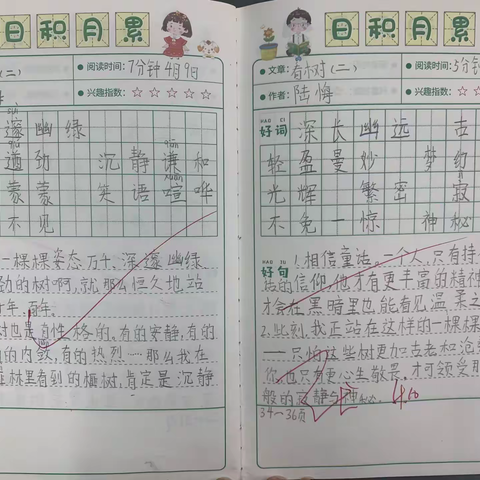 日积月累
(二)
阅读时间:7分钟 4月9日
兴趣指数:☆☆☆☆☆
suì
邃 幽绿
qiú qiān
遒劲 沉静 谦和
xuān
蒙蒙 笑语喧哗
不见
一棵棵姿态万千、深邃幽绿
劲的树啊,就那么恒久地站
年、百年。
树也最真性格的,有的安静,有的
的内敛,有的热烈……那么我在
林里看到的梅树,肯定是沉静
日积月累
文章:看树(二)
阅读时间:5分钟
作者:陆梅
兴趣指数:☆☆☆
HAO CI
好词 深长 幽远 古
轻盈曼妙 梦幻
光辉 繁密 寂
不免一惊 神秘
HAO JU
好句 1.相信童话。一个人,只有持
的信仰,他才有更丰富的精神
才会在黑暗里也能看见温柔之
2.此刻,我正站在这样的一棵棵
——只怕这些树更加古老和沧
你也只有更心生敬畏,才可领受那
般的寂静与神秘。 4.10
34—36页